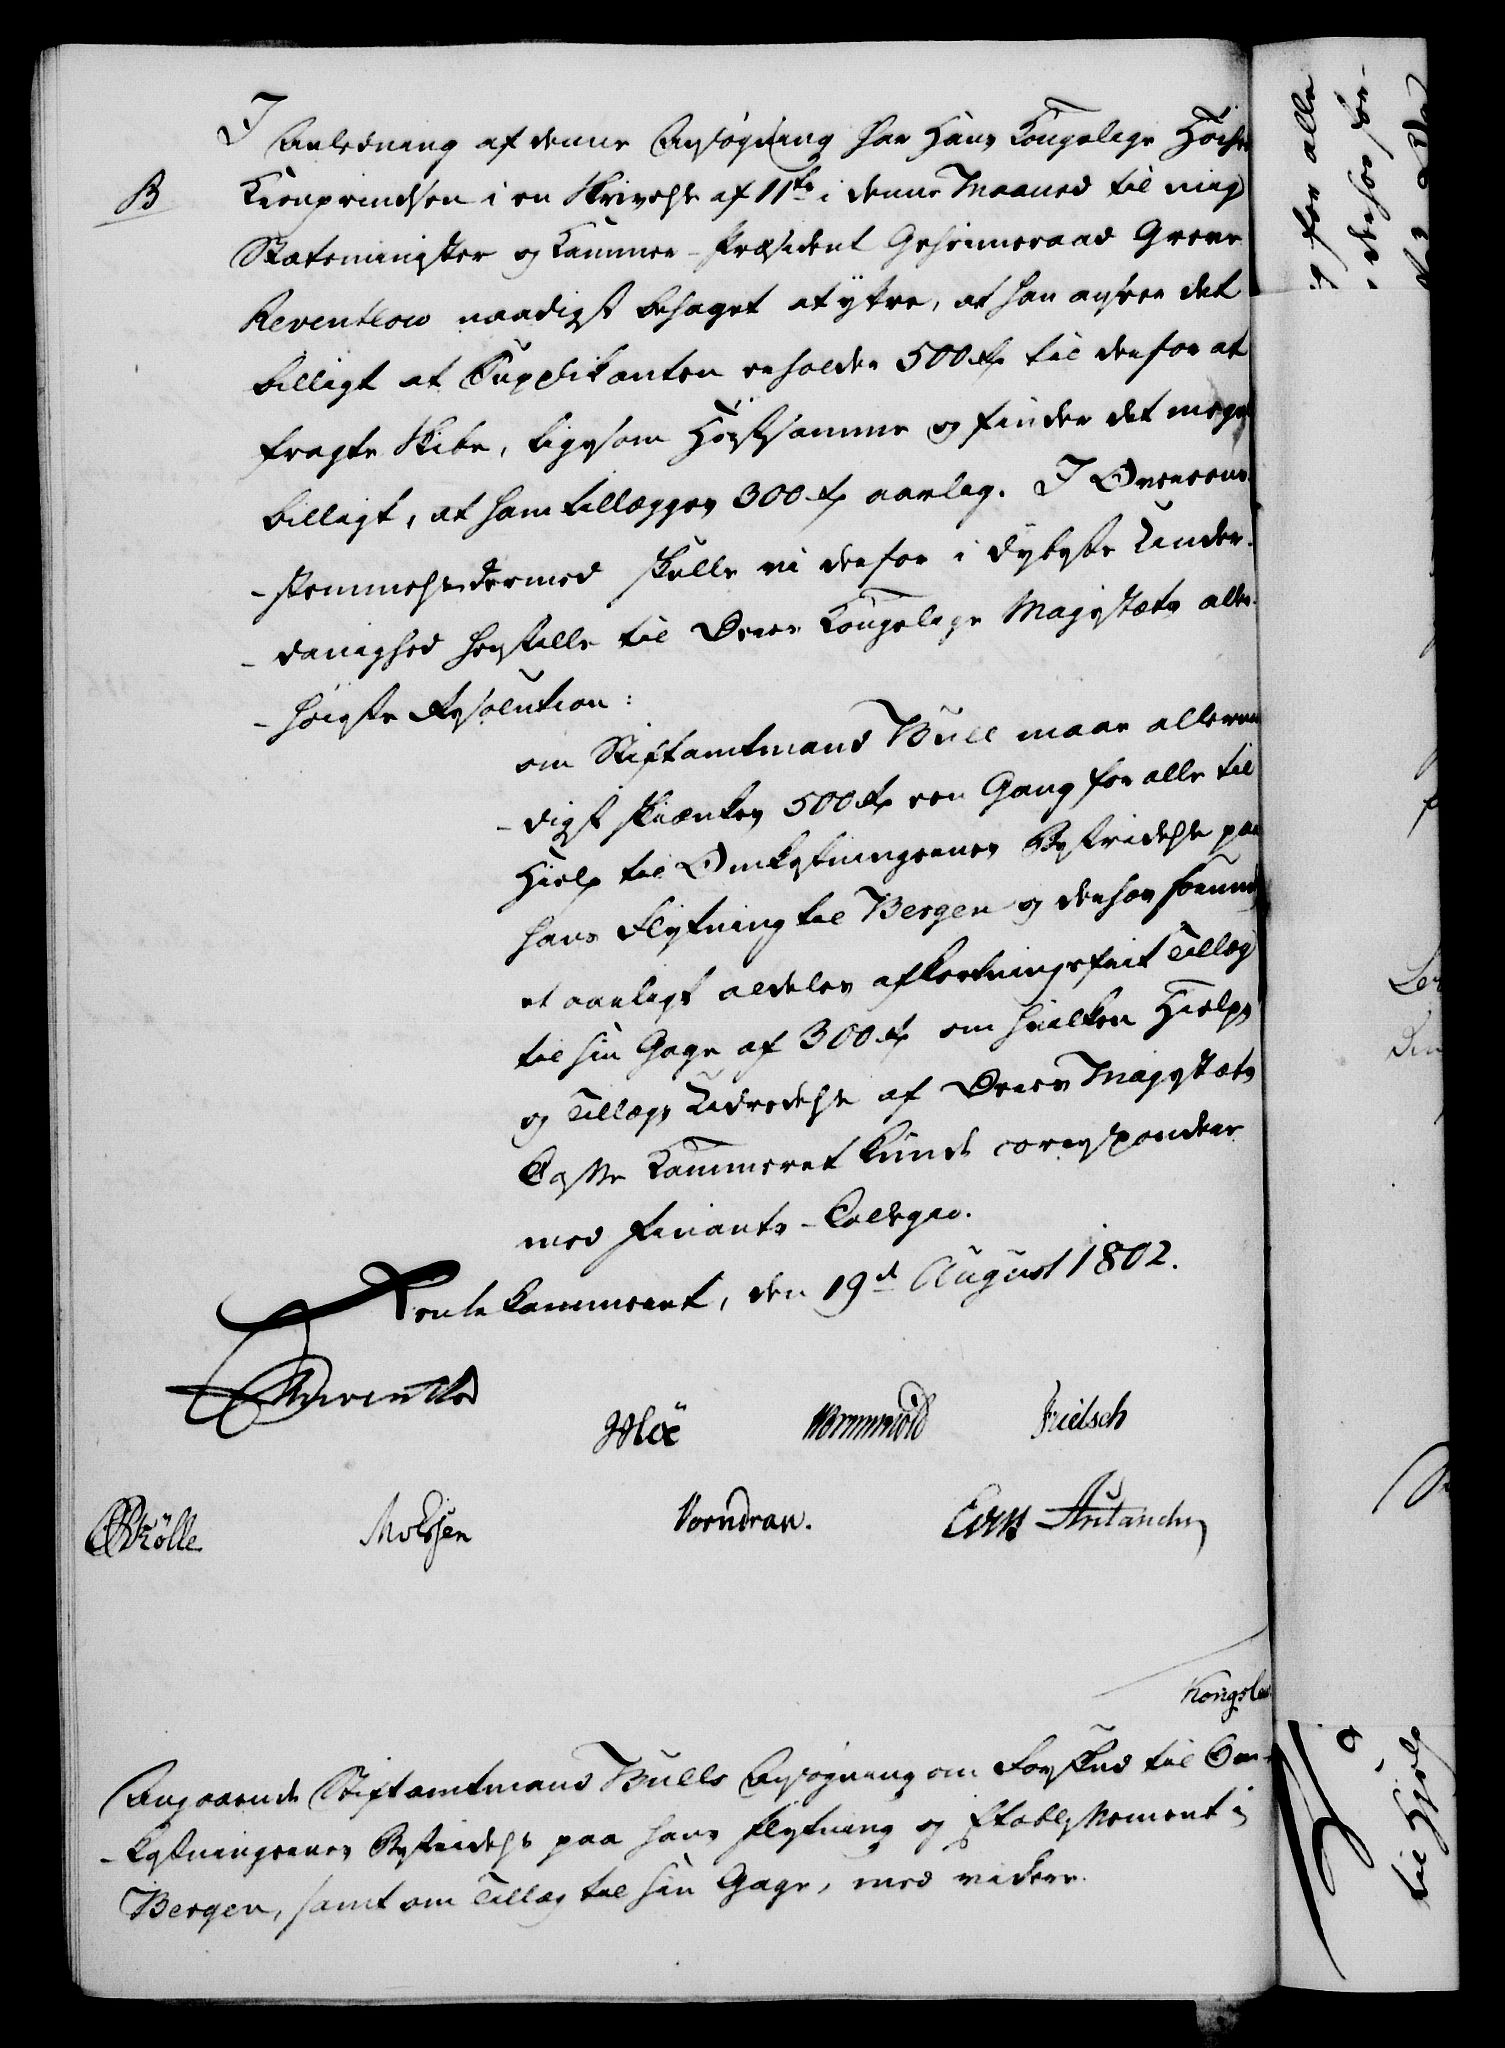 I
Anledning af denne Ansøgning har Hans Kongelige Høihed
B
Kronprindsen i en Skrivelse af 11te i denne Maaned til mig
Statsminister og Kammer-Præsident Geheimeraad Greve
Reventlow naadigst behaget at yttre, at han anseer det
billigt at Supplikanten erholder 500 Rd til derfor at
fragte Skibe, ligesom Høistsamme og finder det meget
billigt, at ham tillægges 300 Rd aarlig. I Overeens-
-stemmelse dermed skulle vi derfor i dybeste Under-
-danighed henstille til Deres Kongelige Majestæts aller-
-høieste Resolution:
om Stiftamtmand Bull maae allernaa-
-digst skienkes 500 Rd een Gang for alle til
Hielp til Omkostningernes Bestridelse paa
hans Flytning til Bergen og derhos forunde
et aarligt aldeles afkortningsfrit Tillæg
til sin Gage af 300 Rd om hvilken Hielps
og Tillægs Udredelse af Deres Majestæts
Casse Kammeret kunde correspondere
med Finants-Collegio.
Rentekammeret, den 19d August 1802.
Reventlow
Wormskiold
Frietsch
Vorndran.
Kongslew
Angaaende Stiftamtmand Bulls Ansøgning om Forskud til Om-
-kostningernes Bestridelse paa hans Flytning og Etablissement i
Bergen, samt om Tillæg til sin Gage, med videre.
g for alle
derhos for-
til Hjelp